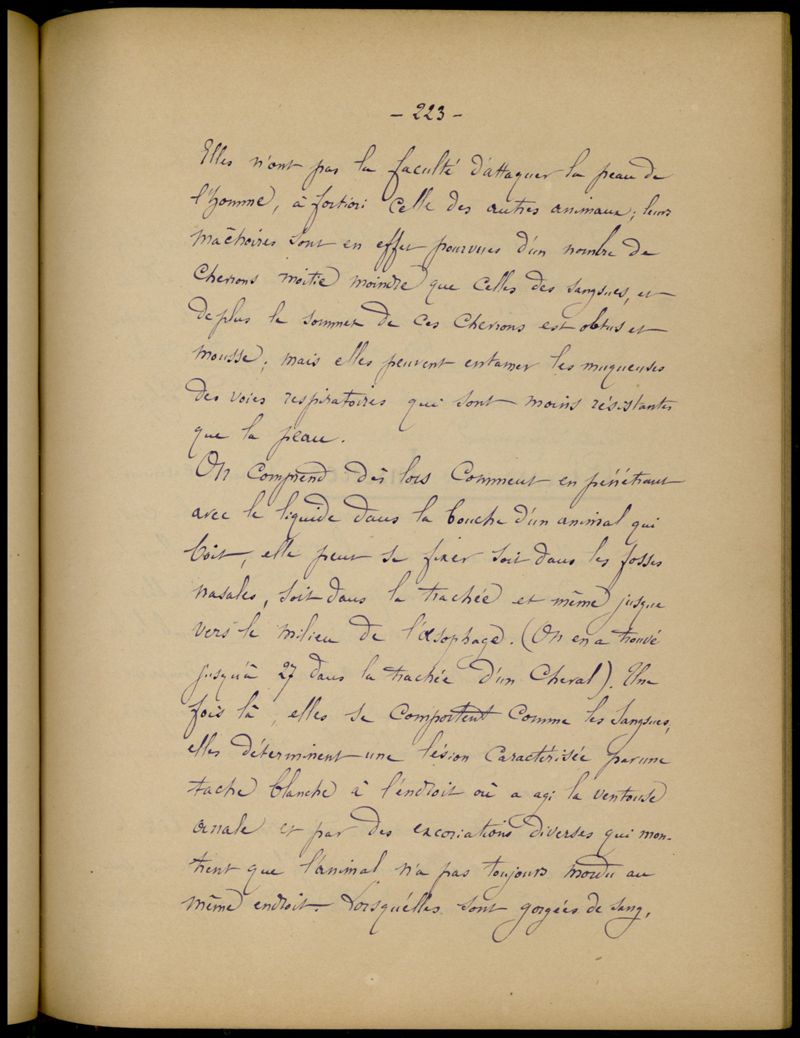 - 223 -
Elles n'ont pas la faculté d'attaquer la peau de
l'homme, à fortiori celle des autres animaux; leurs
mâchoires sont en effet pourvues d'un nombre de
chevrons moitié moindre que celles des sangsues, et
de plus le sommet de ces chevrons est obtus et
mousse; mais elles peuvent entamer les muqueuses
des voies respiratoires qui sont moins résistantes
que la peau.
On comprend dès lors comment en pénétrant
avec le liquide dans la bouche d'un animal qui
boit, elle peut se fixer soit dans les fosses
nasales, soit dans la trachée et même jusque
vers le milieu de l'œsophage. (On en a trouvé
jusqu'à 27 dans la trachée d'un Cheval). Une
fois là, elles se comportent comme les Sangsues,
elles déterminent une lésion caractérisée par une
tache blanche à l'endroit où a agi la ventouse
anale et par des excoriations diverses qui mon-
trent que l'animal n'a pas toujours mordu au
même endroit. Lorsqu'elles sont gorgées de sang,